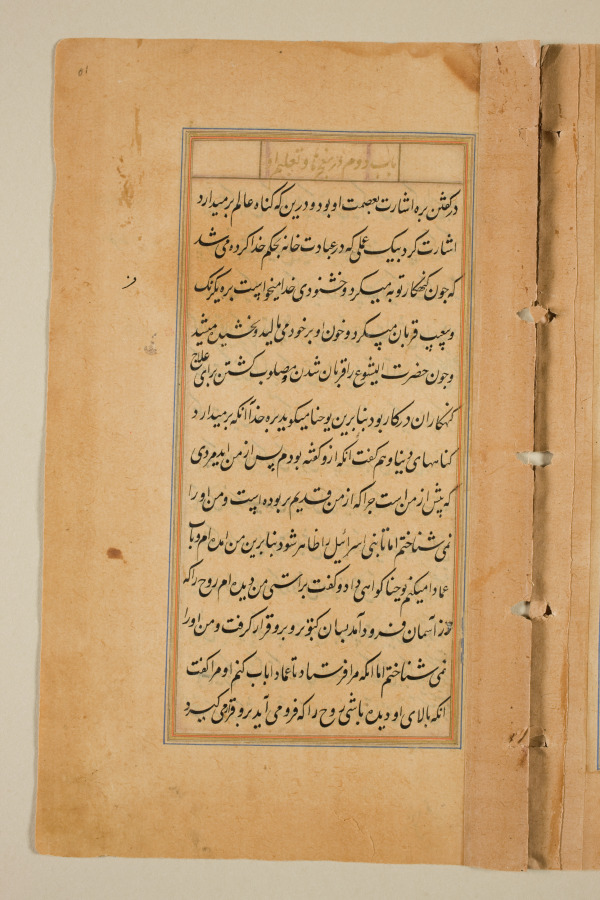 باب دوم در معجزها و تعلیم او
در گفتن بره اشارت بعصمت او بود و درین که گناه عالم بر میدارد
اشارت کرد بیک عملی که در عبادت خانه بحکم خدا کرده می شد
که چون گنهکار توبه میکرد و خشنودی خدا میخواست بره یکرنگ
و بیعیب قربان میکرد و خون او بر خود می مالید و بخشیده میشد
و چون حضرت ایشوع را قربان شدن و مصلوب گشتن برای علاج
گنهکاران درکار بود بنابرین یوحنا میگوید بره خدا آنکه بر میدارد
گناههای دنیا و هم گفت آنکه ازو گفته بودم پس از من اید مردی
که پیش از من است چرا که از من قدیم بوده است و من او را
نمی شناختم اما تا بنی اسرائیل را ظاهر شود بنابرین من امده ام و باب
عماد میکنم یوحنا گواهی داد و گفت براستی من دیده ام روح را که
از آسمان فرود آمد بسان کبوتر و برو قرار گرفت و من او را
نمی شناختم اما انکه مرا فرستاد تا عماد اباب کنم او مرا گفت
انکه بالای او دیده باشی روح را که فرو می آید و برو قرار می گیرد